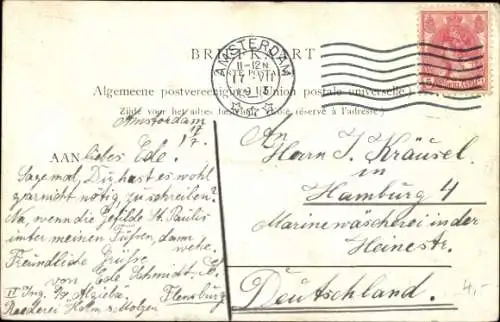 BRIEFKAART
AMSTERDAM
11-12N
17 VII
Algemeene postvereeniging (Union postale universelle)
Zijde voor het adres réservé à l'adresse)
Amsterdam 17/7.
AAN
liebes Ede.
Sage mal, Du hast es wohl
garnicht nötig, zu schreiben?
Na, wenn die Gefilde St. Paulis
unter meinen Füßen, dann
wehe.
Freundliche Grüße
von Ede Schmidt,
II Ing. Flensburg
Reederei Holm & Molzen
An
Herrn J. Kräusel
in
Hamburg 4
Marinewäscherei in der
Heinestr.
Deutschland.
4,-